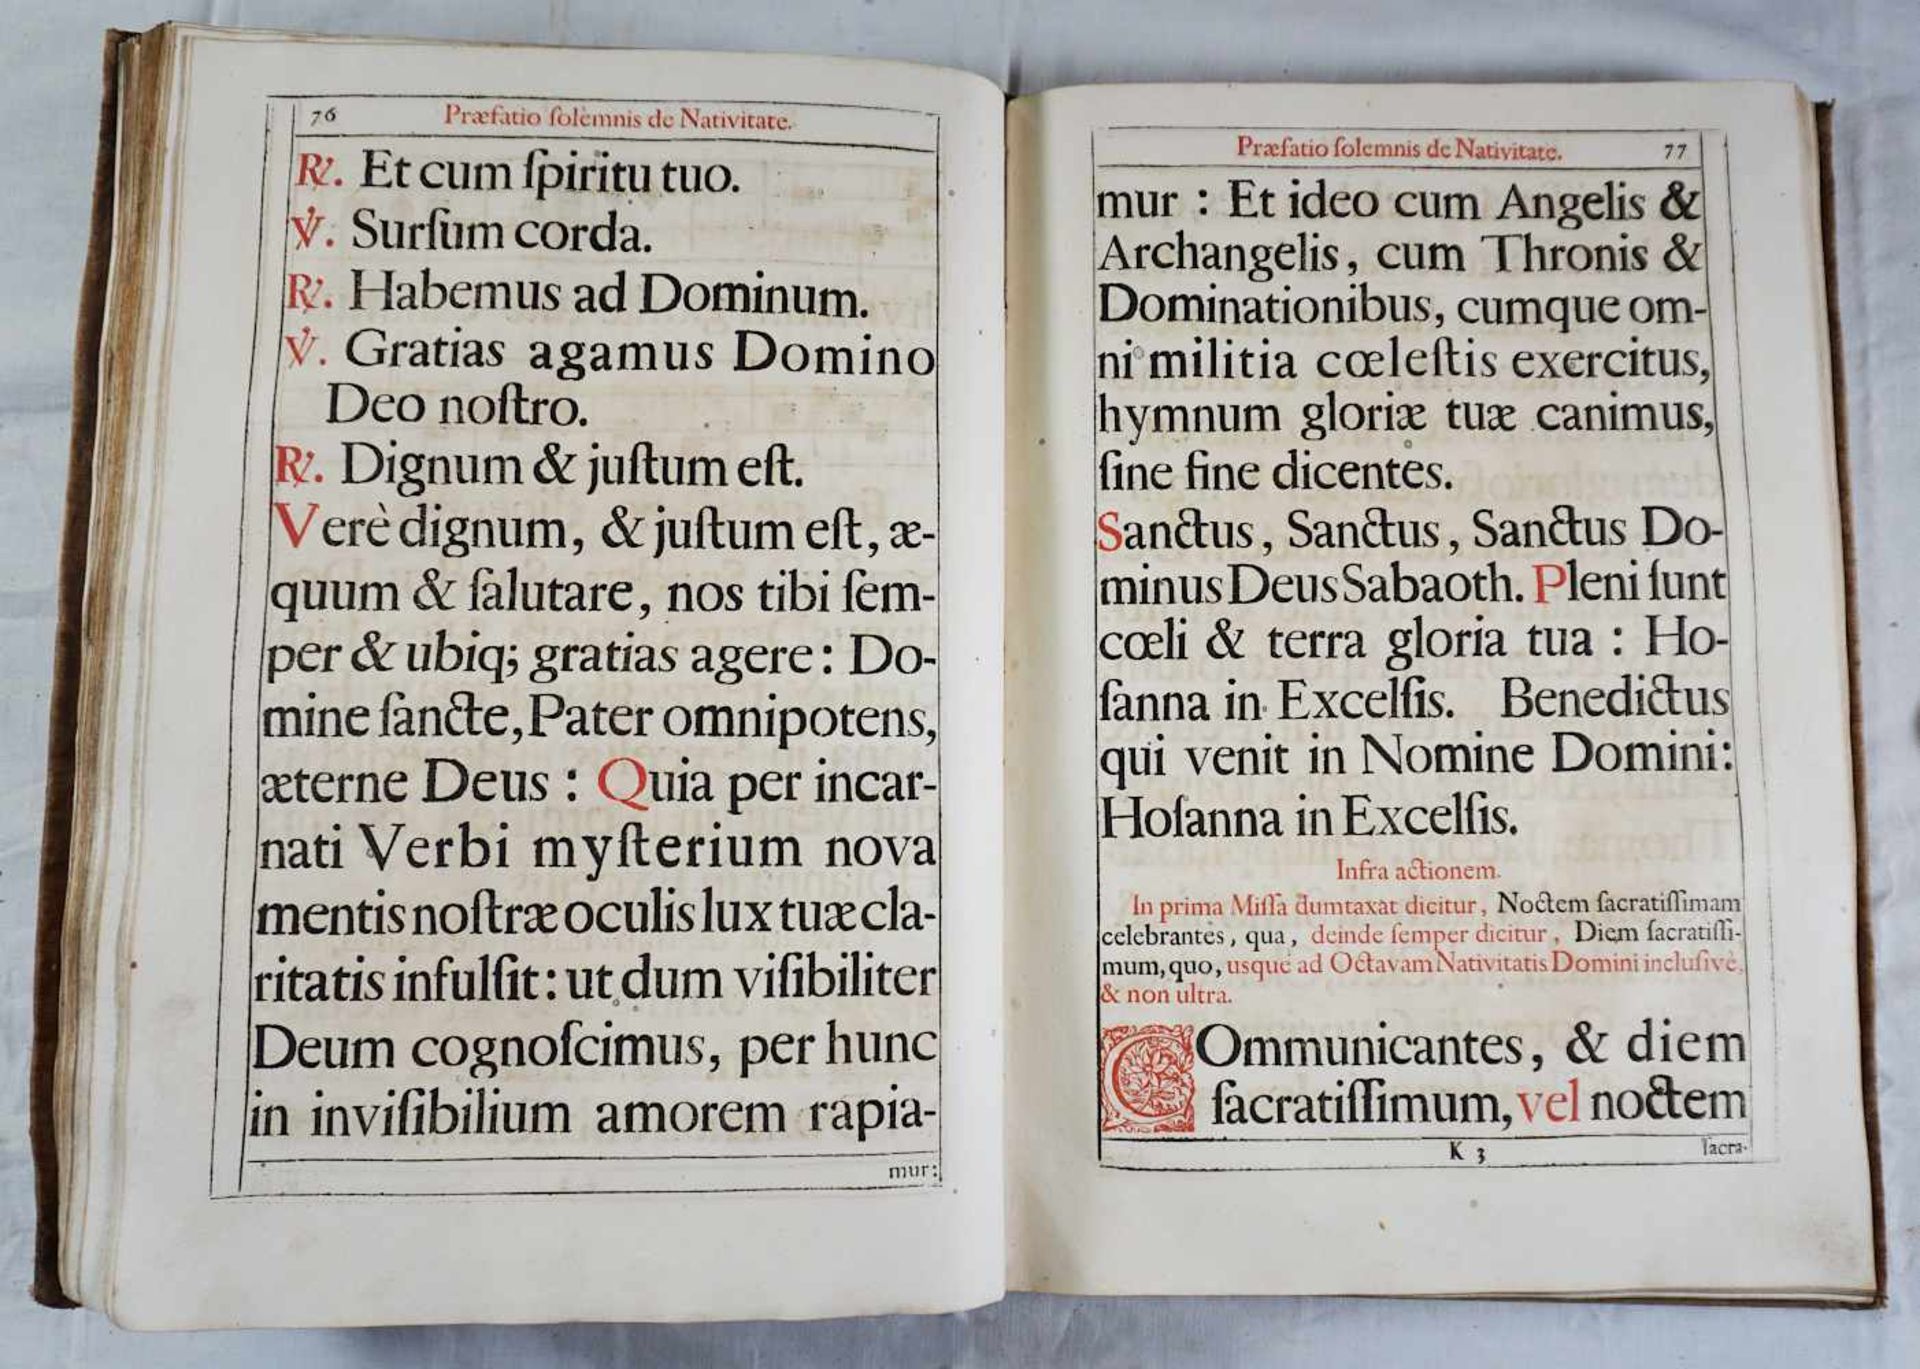 76 Præfatio ſolemnis de Nativitate.
℟. Et cum ſpiritu tuo.
℣. Surſum corda.
℟. Habemus ad Dominum.
℣. Gratias agamus Domino
Deo noſtro.
℟. Dignum & juſtum eſt.
Verè dignum, & juſtum eſt, æ-
quum & ſalutare, nos tibi ſem-
per & ubiq; gratias agere: Do-
mine ſancte, Pater omnipotens,
æterne Deus : Quia per incar-
nati Verbi myſterium nova
mentis noſtræ oculis lux tuæ cla-
ritatis infulſit: ut dum viſibiliter
Deum cognoſcimus, per hunc
in inviſibilium amorem rapia-
mur:
Præfatio ſolemnis de Nativitate. 77
mur : Et ideo cum Angelis &
Archangelis, cum Thronis &
Dominationibus, cumque om-
ni militia cœleſtis exercitus,
hymnum gloriæ tuæ canimus,
ſine fine dicentes.
Sanctus, Sanctus, Sanctus Do-
minus Deus Sabaoth. Pleni ſunt
cœli & terra gloria tua : Ho-
ſanna in Excelſis. Benedictus
qui venit in Nomine Domini:
Hoſanna in Excelſis.
Infra actionem.
In prima Miſſa dumtaxat dicitur, Noctem ſacratiſſimam
celebrantes, qua, deinde ſemper dicitur, Diem ſacratiſſi-
mum, quo, usque ad Octavam Nativitatis Domini incluſivè,
& non ultra.
COmmunicantes, & diem
ſacratiſſimum, vel noctem
K 3 ſacra-